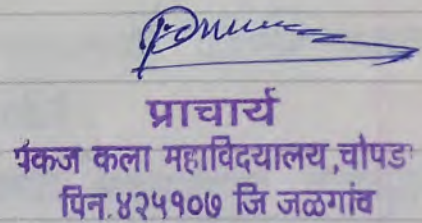 प्राचार्य
पंकज कला महाविदयालय,चोपडा
पिन.४२५१०७ जि जळगांव